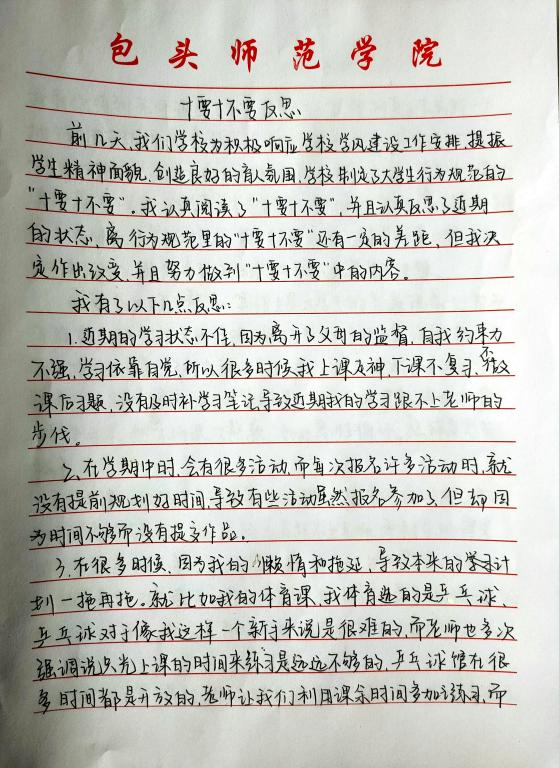 包头师范学院
十要十不要反思
前几天,我们学校为积极响应学校学风建设工作安排,提振
学生精神面貌,创造良好的育人氛围,学校制定了大学生行为规范的
“十要十不要”。我认真阅读了“十要十不要”,并且认真反思了近期
的状态,离行为规范里的“十要十不要”还有一定的差距,但我决
定作出改变,并且努力做到“十要十不要”中的内容。
我有了以下几点反思:
1.近期的学习状态不佳,因为离开了父母的监督,自我约束力
不强,学习依靠自觉,所以很多时候我上课走神,下课不复习,
课后习题,没有及时补学习笔记导致近期我的学习跟不上老师的
步伐。
2.在学期中时,会有很多活动,而每次报名许多活动时,就
没有提前规划好时间,导致有些活动虽然报名参加了,但却因
为时间不够而没有提交作品。
3.在很多时候,因为我的懒惰和拖延,导致本来的学习计
划一拖再拖。就比如我的体育课,我体育选的是乒乓球,
乒乓球对于像我这样一个新手来说是很难的,而老师也多次
强调说只光上课的时间来练习是远远不够的,乒乓球馆在很
多时间都是开放的,老师让我们利用课余时间多加练习,而